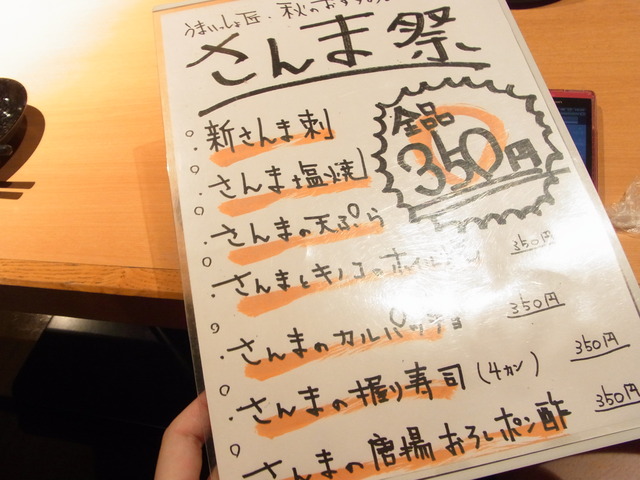 うまいっしょ匠・秋のおすすめ
さんま祭
全品
350円
新さんま刺
さんま塩焼
さんまの天ぷら
さんまとキノコのホイル焼 350円
さんまのカルパッチョ 350円
さんまの握り寿司(4カン) 350円
さんまの唐揚おろしポン酢 350円